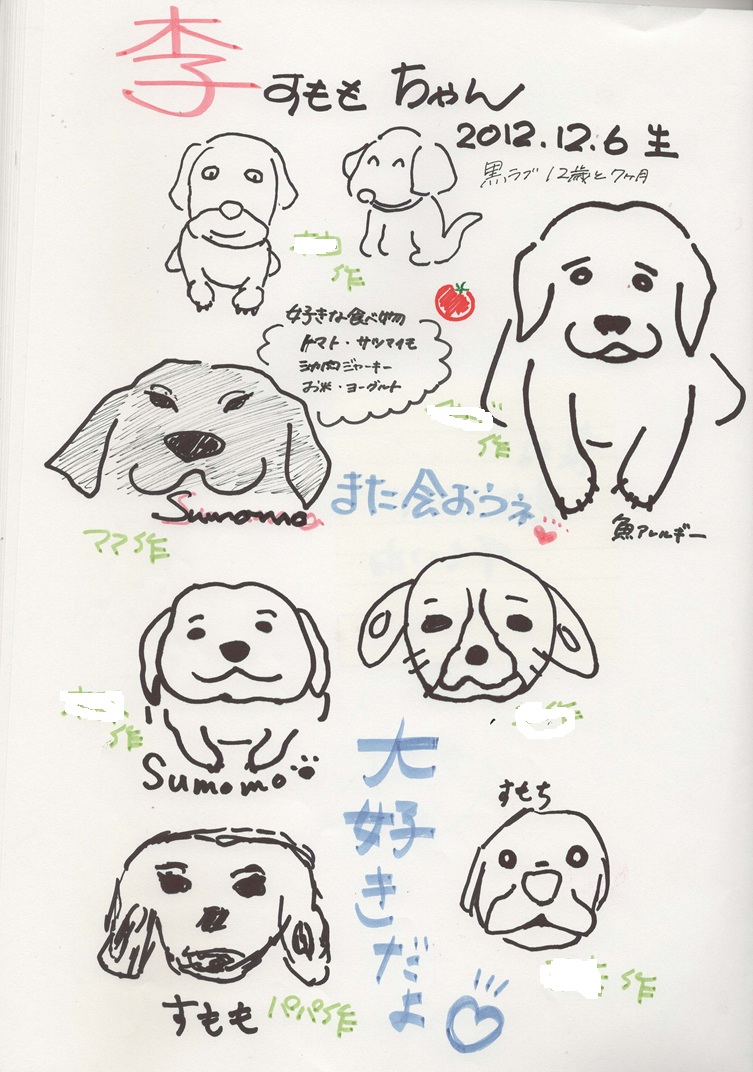 李 すもも ちゃん
2012.12.6 生
黒ラブ 12歳と7ヶ月
作
好きな食べ物
トマト・サツマイモ
ジャーキー
お米・ヨーグルト
作
Sumomo
また会おうね
魚アレルギー
ママ作
作
作
Sumomo
大好きだよ
すもち
作
すもも
パパ作